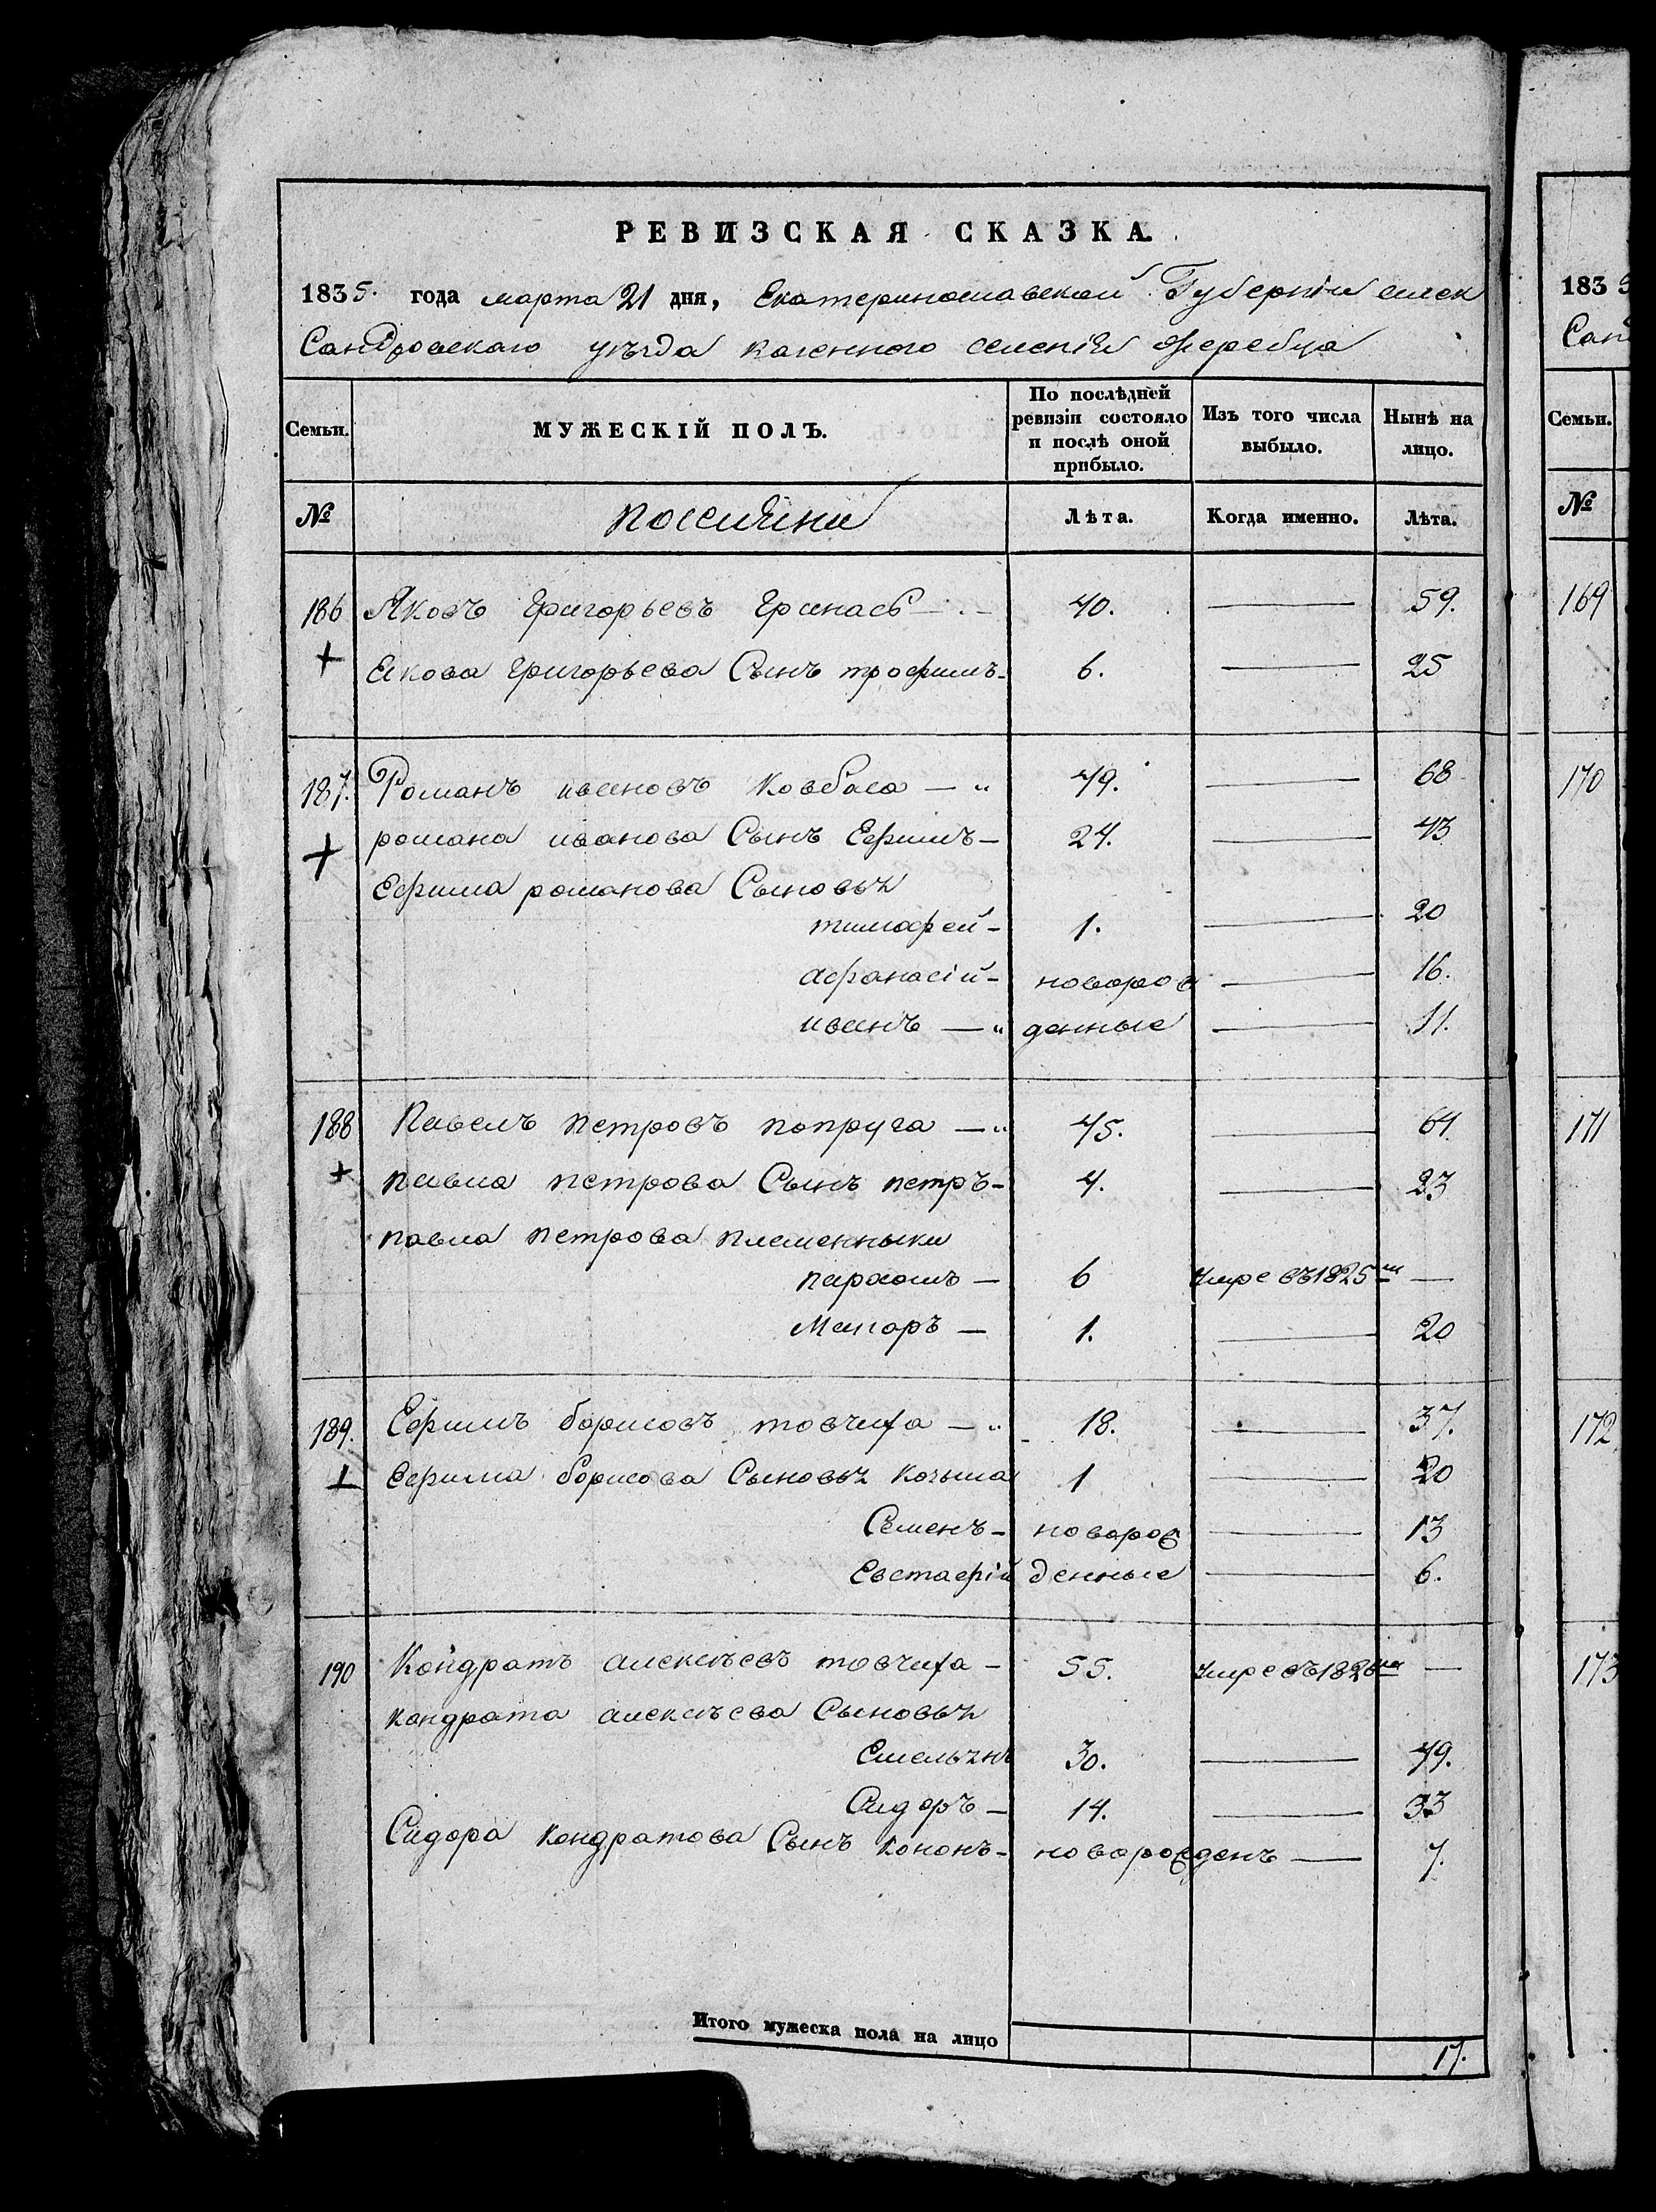 РЕВИЗСКАЯ СКАЗКА.
1835. года марта 21 дня, Екатеринославской Губерніи алек
Сандровскаго уѣзда казенного селенія Жеребца
Семьи. МУЖЕСКІЙ ПОЛЪ. По послѣдней ревизіи состояло и послѣ оной прибыло. Изъ того числа выбыло. Нынѣ на лицо.
№ поселяни Лѣта. Когда именно. Лѣта.
186 Яковъ Григорьевъ 40. — 59.
Екова Григорьева Сынъ трофимъ 6. — 25
187. Романъ ивановъ Ковбаса — 49. — 68
романа иванова Сынъ Ефимъ — 24. — 43
Ефима романова Сыновья
тимофей — 1. — 20
афанасій — новорож — 16.
иванъ — денные — 11.
188 Павелъ петровъ попруга — 45. — 64.
павла петрова Сынъ петръ — 4. — 23
павла петрова племенныки
пархомъ — 6 умре въ 1825м —
Макаръ — 1. — 20
189. Ефимъ борисовъ товчига — 18. — 37.
Ефима борисова Сыновья козьма 1 — 20
Семенъ — новорож — 13
Евстафій денные — 6.
190 Кондратъ алексѣевъ товчига — 55. умре въ 1826м —
кондрата алексѣева Сыновья
Емельянъ 30. — 49.
Сидоръ — 14. — 33
Сидора кондратова Сынъ кононъ — новорожденъ — 7.
Итого мужеска пола на лицо 17.
183
Сан
Семьи.
№
169
170
171
172
173